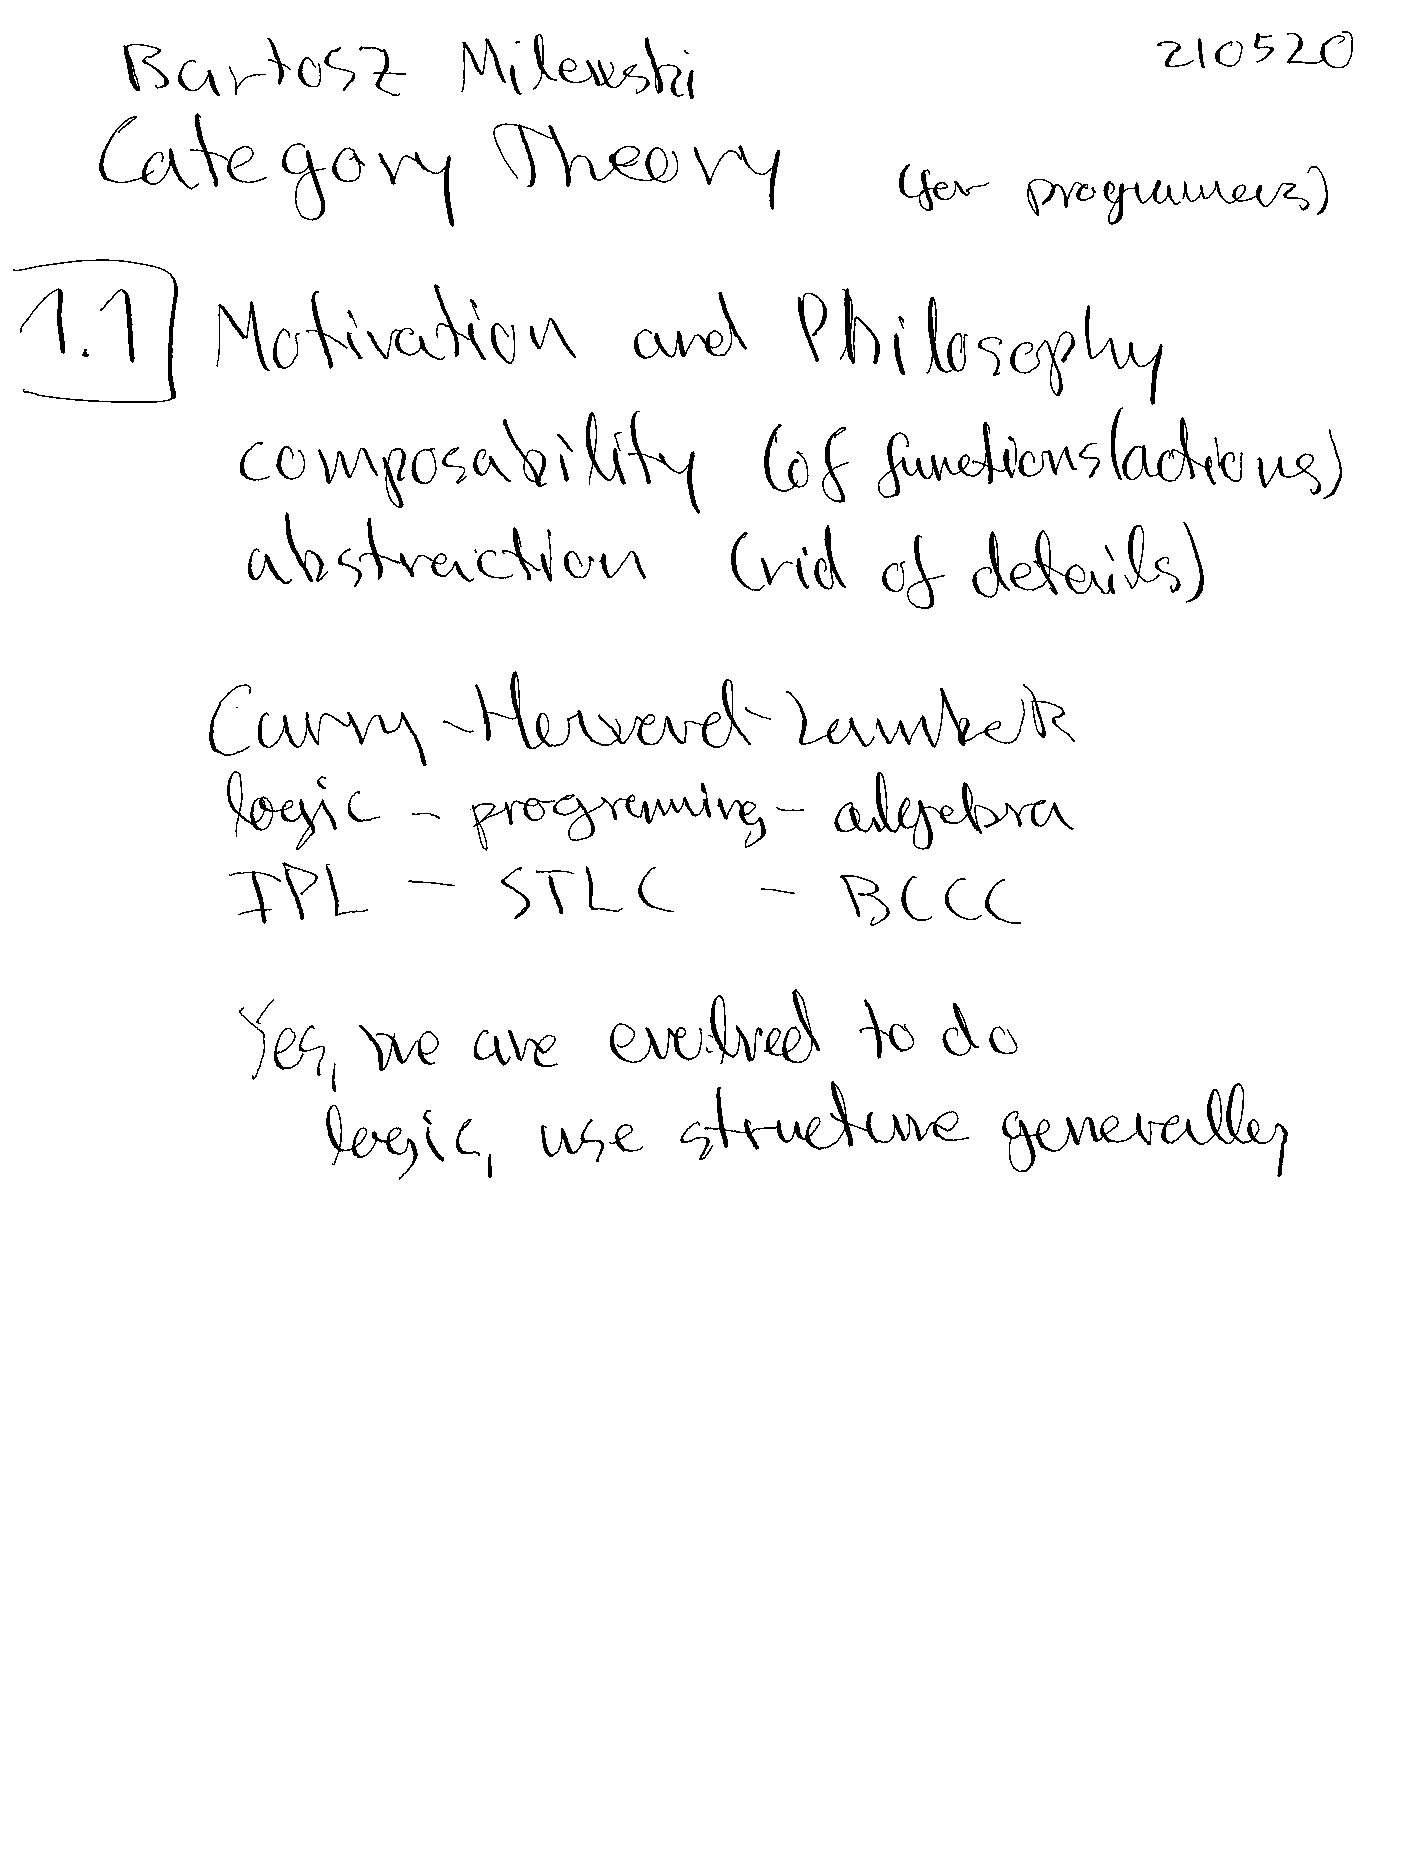 Bartosz Milewski 210520
Category Theory (for programers)
1.1 Motivation and Philosophy
composability (of functions/actions)
abstraction (rid of details)
Curry-Howard-Lambek
logic - programing - algebra
IPL - STLC - BCCC
Yes, we are evolved to do
logic, use structure generally